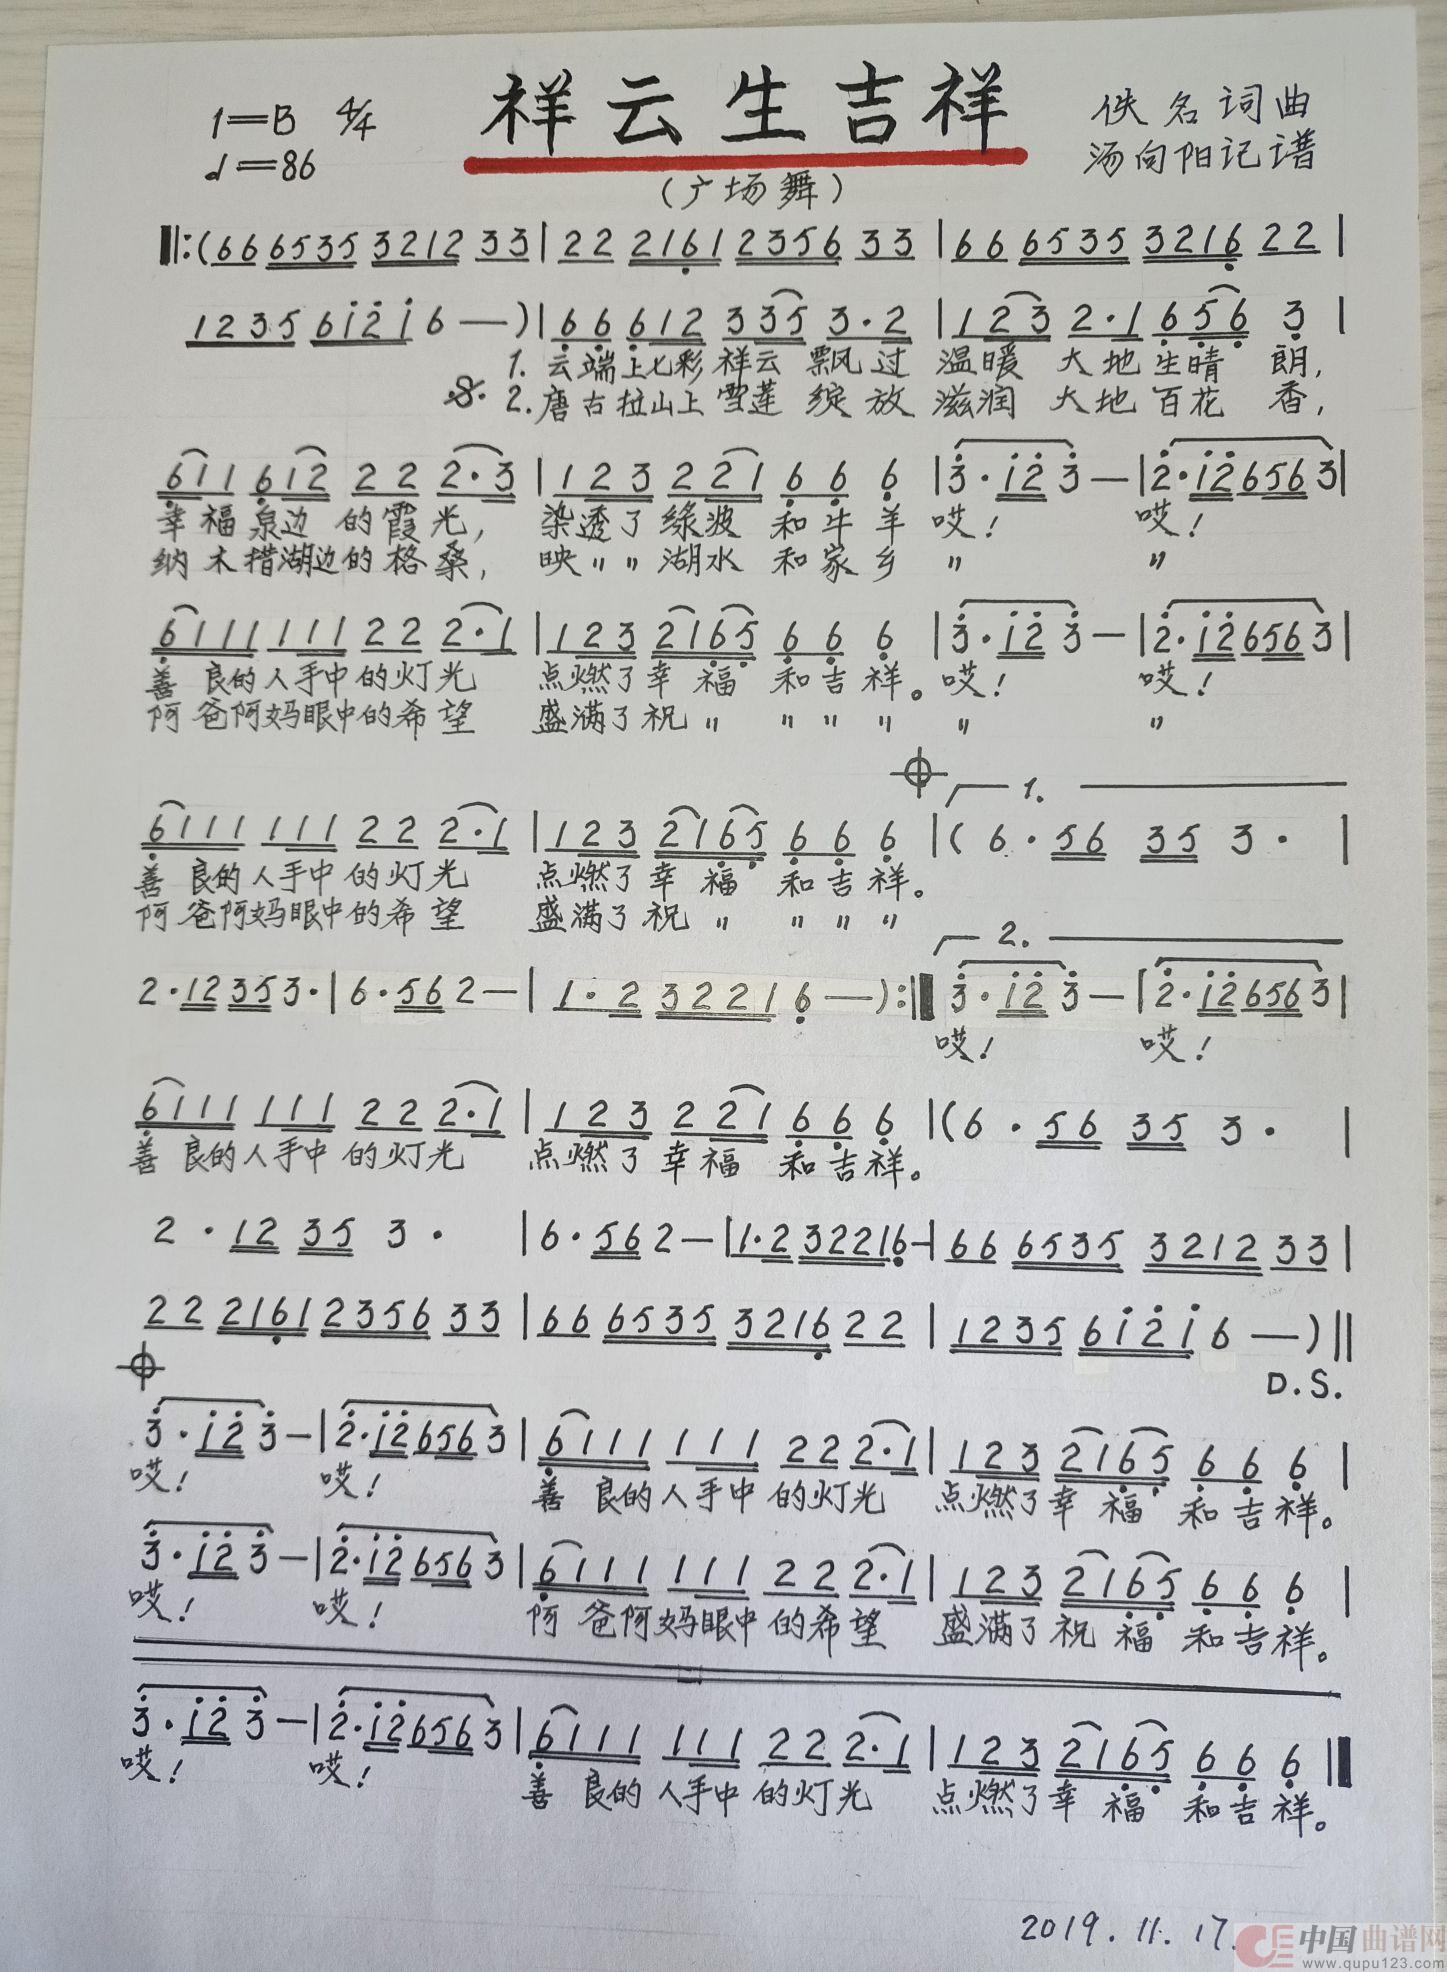 祥云生吉祥
1=B 4/4
佚名词曲
♩=86
汤向阳记谱
(广场舞)
‖:(66 6535 3212 33|22 2161 2356 33|66 6535 3216 22|
1235 6i2i 6 —)|66612 335 3·2|123 2·1 656 3|
1.云端上七彩祥云飘过 温暖大地生晴朗,
𝄋 2.唐古拉山上雪莲绽放 滋润大地百花香,
611 612 22 2·3|123 221 66 6|3·i2 3—|2·i26563|
幸福泉边的霞光, 染透了绿波和牛羊 哎! 哎!
纳木措湖边的格桑, 映〃〃湖水和家乡 〃 〃
6111 111 22 2·1|123 2165 66 6|3·i2 3—|2·i26563|
善良的人手中的灯光 点燃了幸福和吉祥。哎! 哎!
阿爸阿妈眼中的希望 盛满了祝〃 〃〃〃 〃 〃
1.
6111 111 22 2·1|123 2165 66 6|(6·56 35 3·|
善良的人手中的灯光 点燃了幸福和吉祥。
阿爸阿妈眼中的希望 盛满了祝〃 〃〃〃
2.
2·12 35 3·|6·56 2—|1·2 32216—):‖3·i2 3—|2·i26563|
哎! 哎!
6111 111 22 2·1|123 221 66 6|(6·56 35 3·|
善良的人手中的灯光 点燃了幸福和吉祥。
2·12 35 3·|6·56 2—|1·2 32216—|66 6535 3212 33|
22 2161 2356 33|66 6535 3216 22|1235 6i2i 6—)‖
D.S.
3·i2 3—|2·i26563|6111 111 22 2·1|123 2165 66 6|
哎! 哎! 善良的人手中的灯光 点燃了幸福和吉祥。
3·i2 3—|2·i26563|6111 111 22 2·1|123 2165 66 6|
哎! 哎! 阿爸阿妈眼中的希望 盛满了祝福和吉祥。
3·i2 3—|2·i26563|6111 111 22 2·1|123 2165 66 6‖
哎! 哎! 善良的人手中的灯光 点燃了幸福和吉祥。
2019.11.17.
中国曲谱网
www.qupu123.com